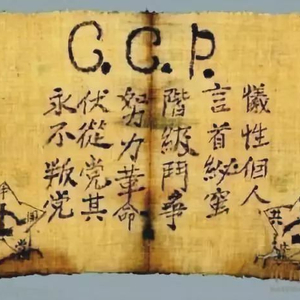 C.C.P.
犧性個人
言首
階級鬥爭
努力革命
伏從党其
永不叛党
共